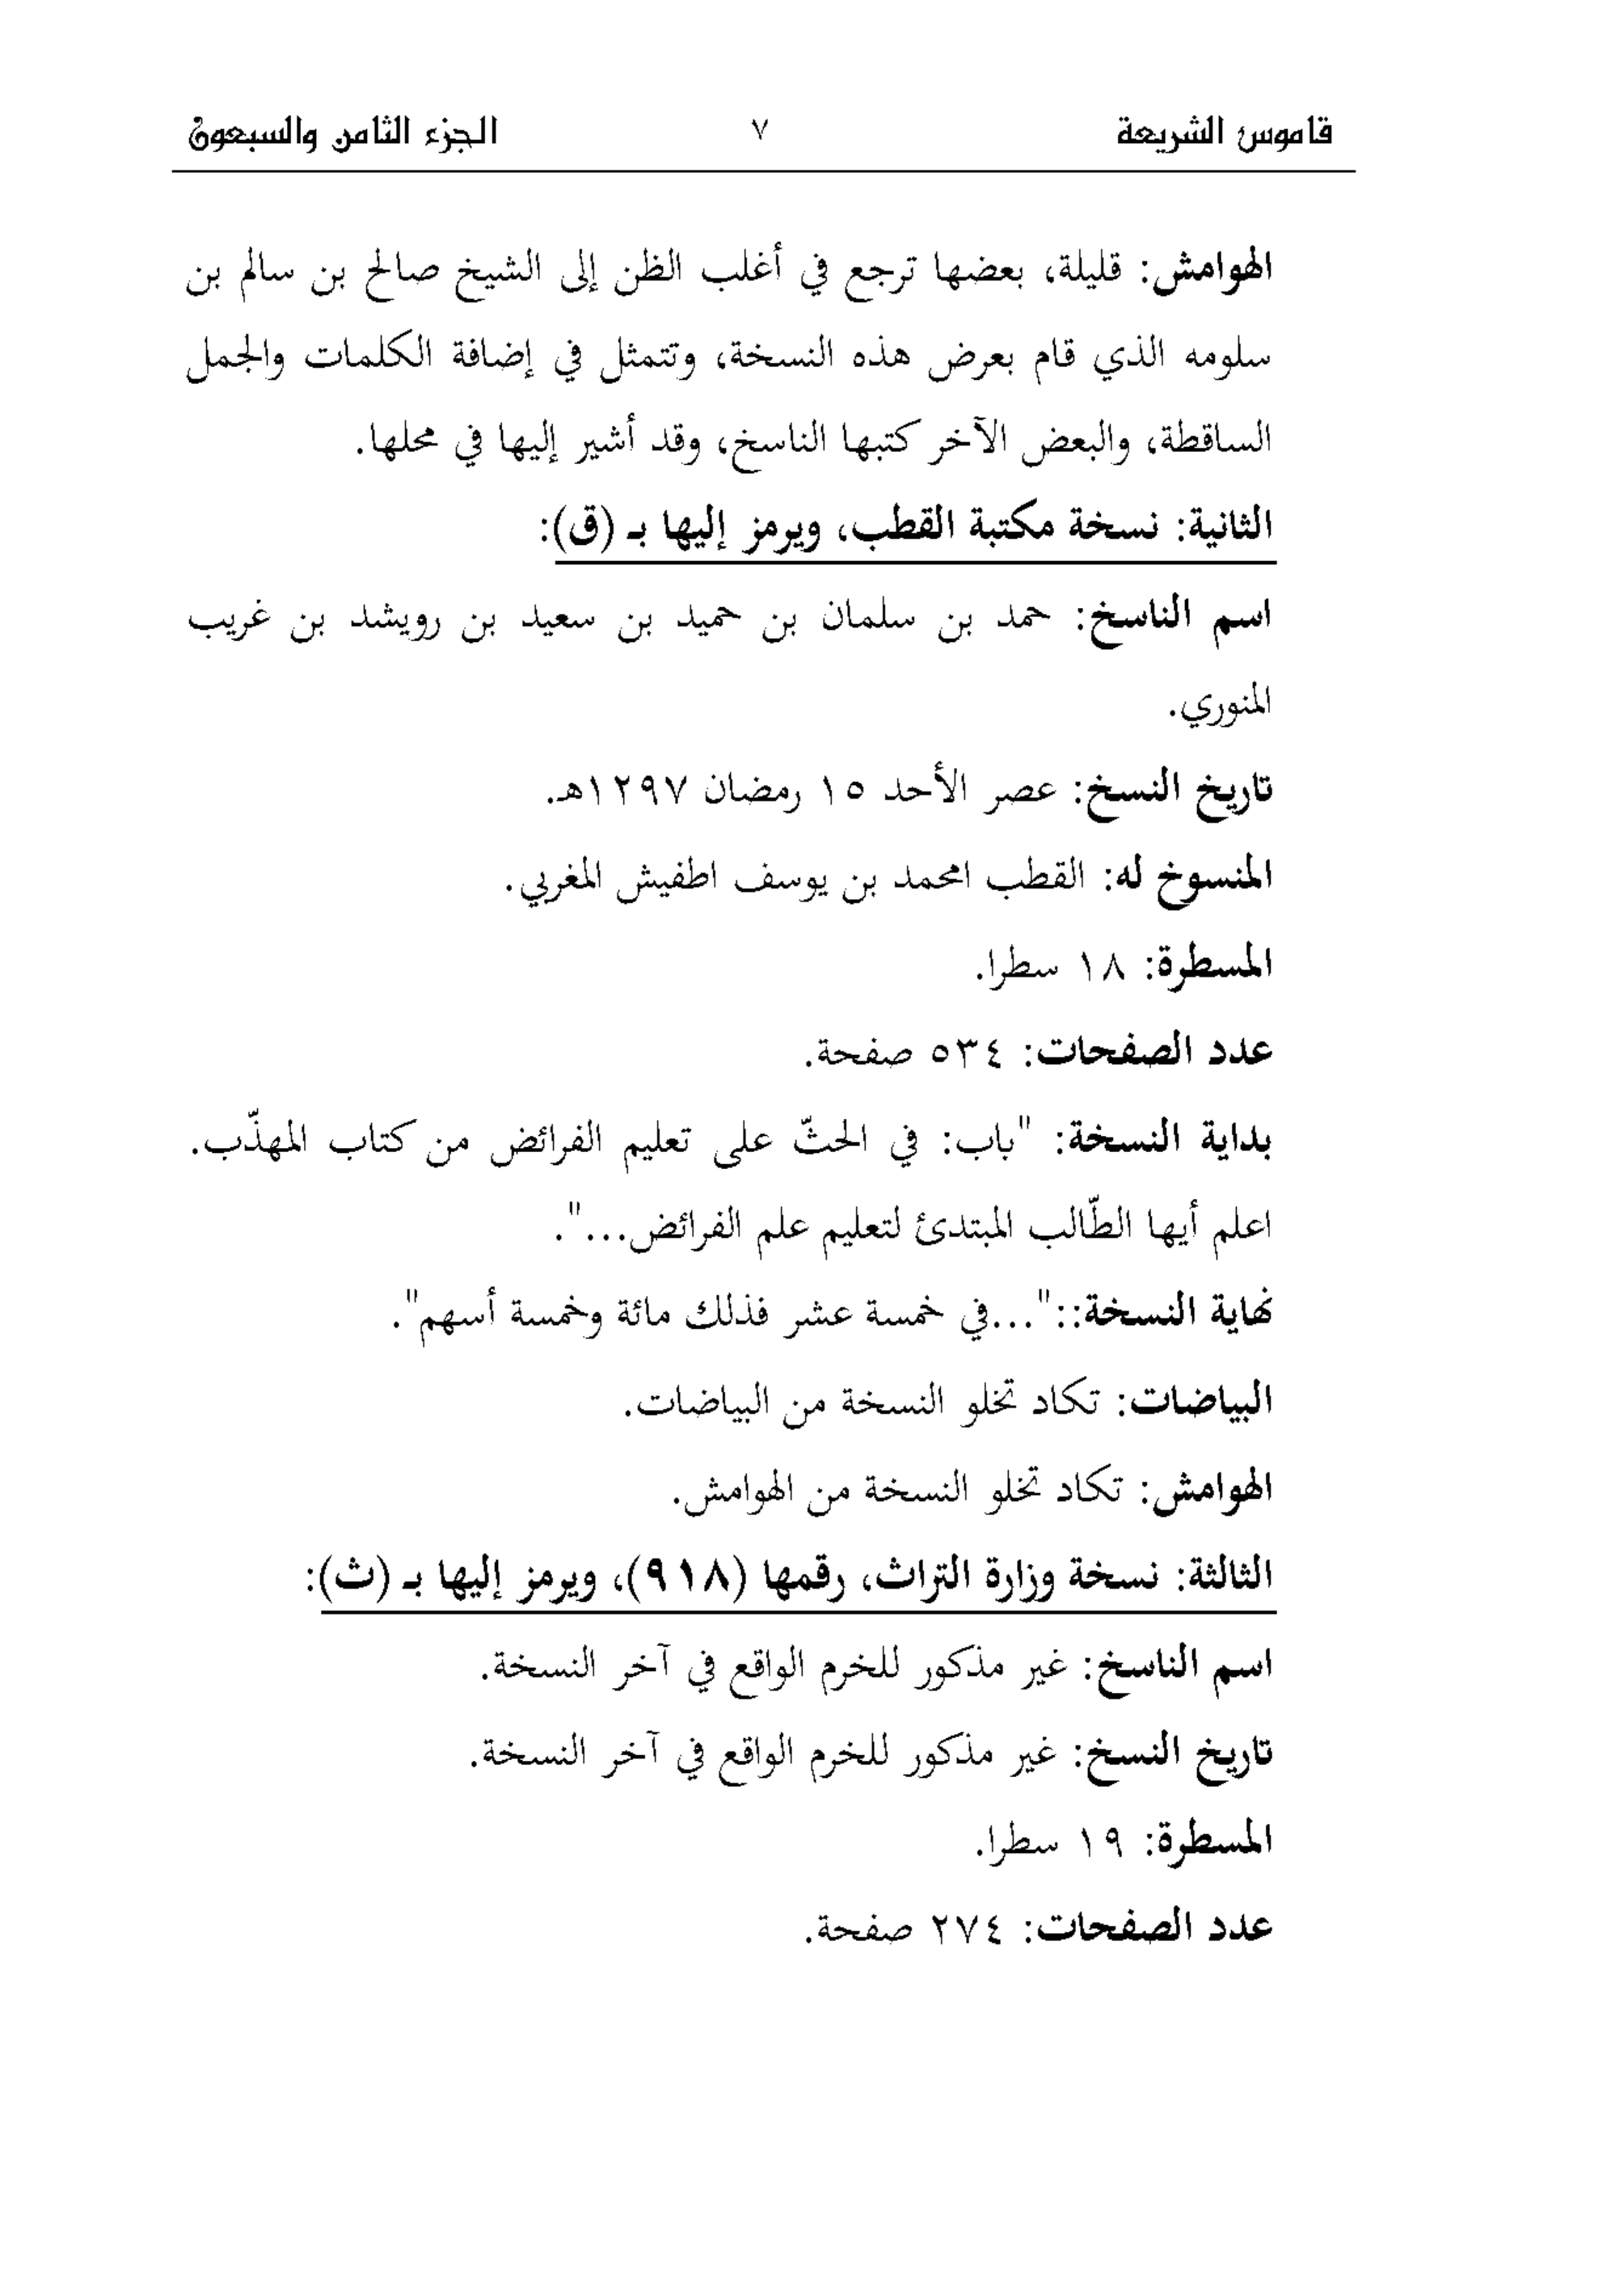 قاموس الشريعة ٧ الجزء الثامن والسبعون
الهوامش: قليلة، بعضها ترجع في أغلب الظن إلى الشيخ صالح بن سالم بن
سلومه الذي قام بعرض هذه النسخة، وتتمثل في إضافة الكلمات والجمل
الساقطة، والبعض الآخر كتبها الناسخ، وقد أشير إليها في محلها.
الثانية: نسخة مكتبة القطب، ويرمز إليها بـ (ق):
اسم الناسخ: حمد بن سلمان بن حميد بن سعيد بن رويشد بن غريب
المنوري.
تاريخ النسخ: عصر الأحد ١٥ رمضان ١٢٩٧هـ.
المنسوخ له: القطب امحمد بن يوسف اطفيش المغربي.
المسطرة: ١٨ سطرا.
عدد الصفحات: ٥٣٤ صفحة.
بداية النسخة: "باب: في الحثّ على تعليم الفرائض من كتاب المهذّب.
اعلم أيها الطّالب المبتدئ لتعليم علم الفرائض...".
نهاية النسخة::"...في خمسة عشر فذلك مائة وخمسة أسهم".
البياضات: تكاد تخلو النسخة من البياضات.
الهوامش: تكاد تخلو النسخة من الهوامش.
الثالثة: نسخة وزارة التراث، رقمها (٩١٨)، ويرمز إليها بـ (ث):
اسم الناسخ: غير مذكور للخرم الواقع في آخر النسخة.
تاريخ النسخ: غير مذكور للخرم الواقع في آخر النسخة.
المسطرة: ١٩ سطرا.
عدد الصفحات: ٢٧٤ صفحة.